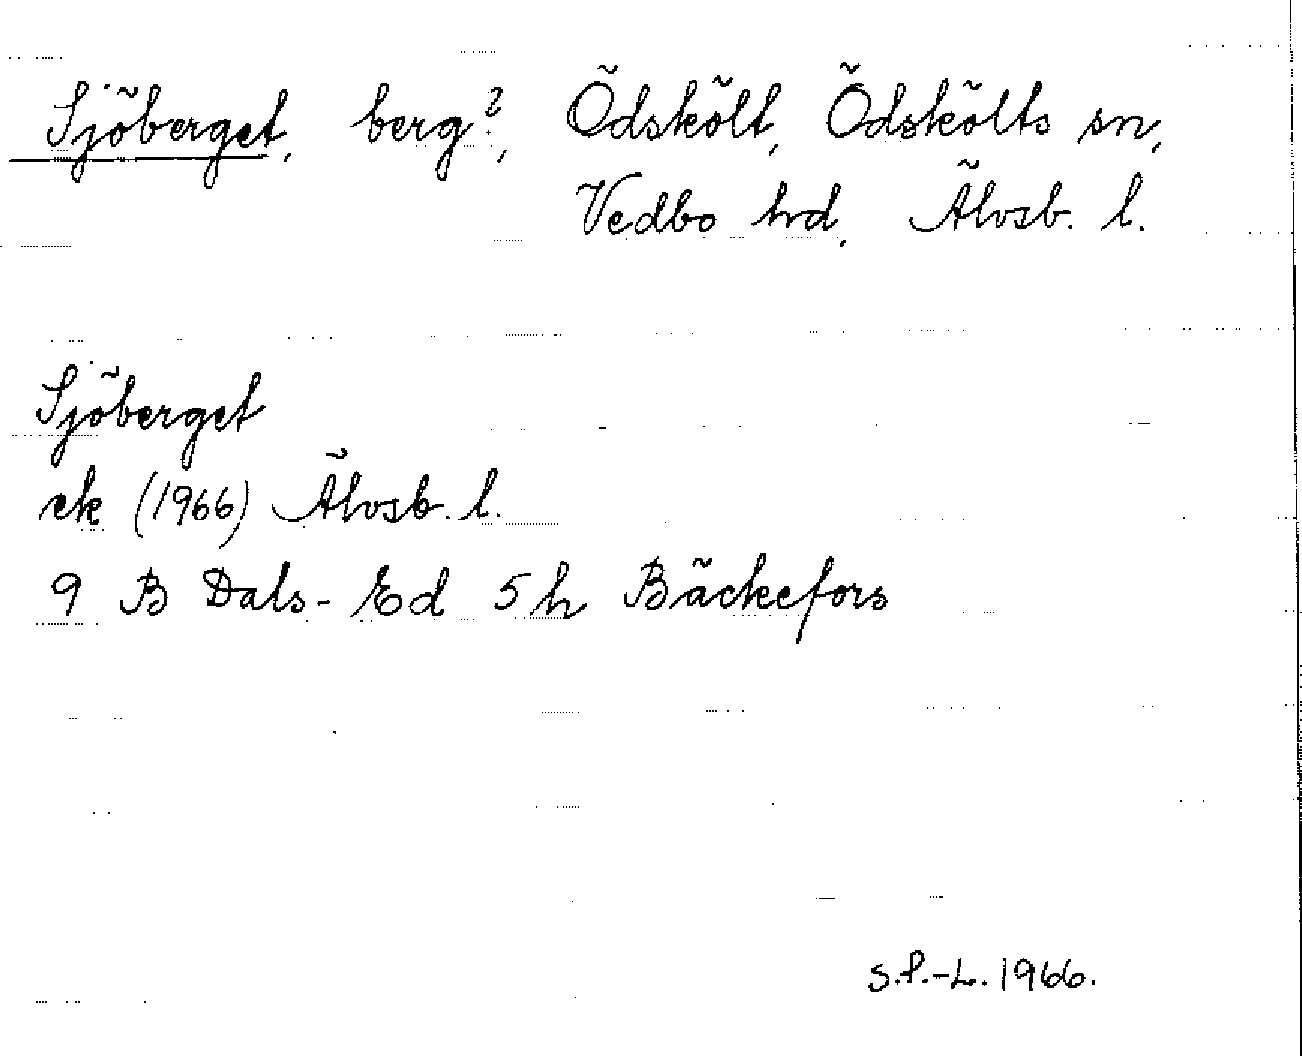 Sjöberget, berg?, Ödskölt, Ödskölts sn,
Vedbo hrd, Älvsb. l.
Sjöberget
ek (1966) Älvsb. l.
9 B Dals-Ed 5 h Bäckefors
S.P.-L. 1966.